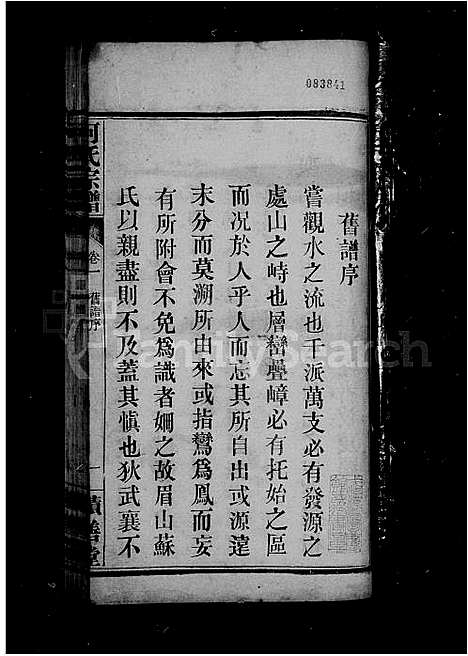 083841
舊譜序
嘗觀水之流也千派萬支必有發源之
處山之峙也層巒疊嶂必有托始之區
而況於人乎人而忘其所自出或源遠
末分而莫溯所由來或指鸞為鳳而妄
有所附會不免為識者姍之故眉山蘇
氏以親盡則不及蓋其慎也狄武襄不
何氏宗譜
卷一 舊譜序
一
積善堂
FamilySearch